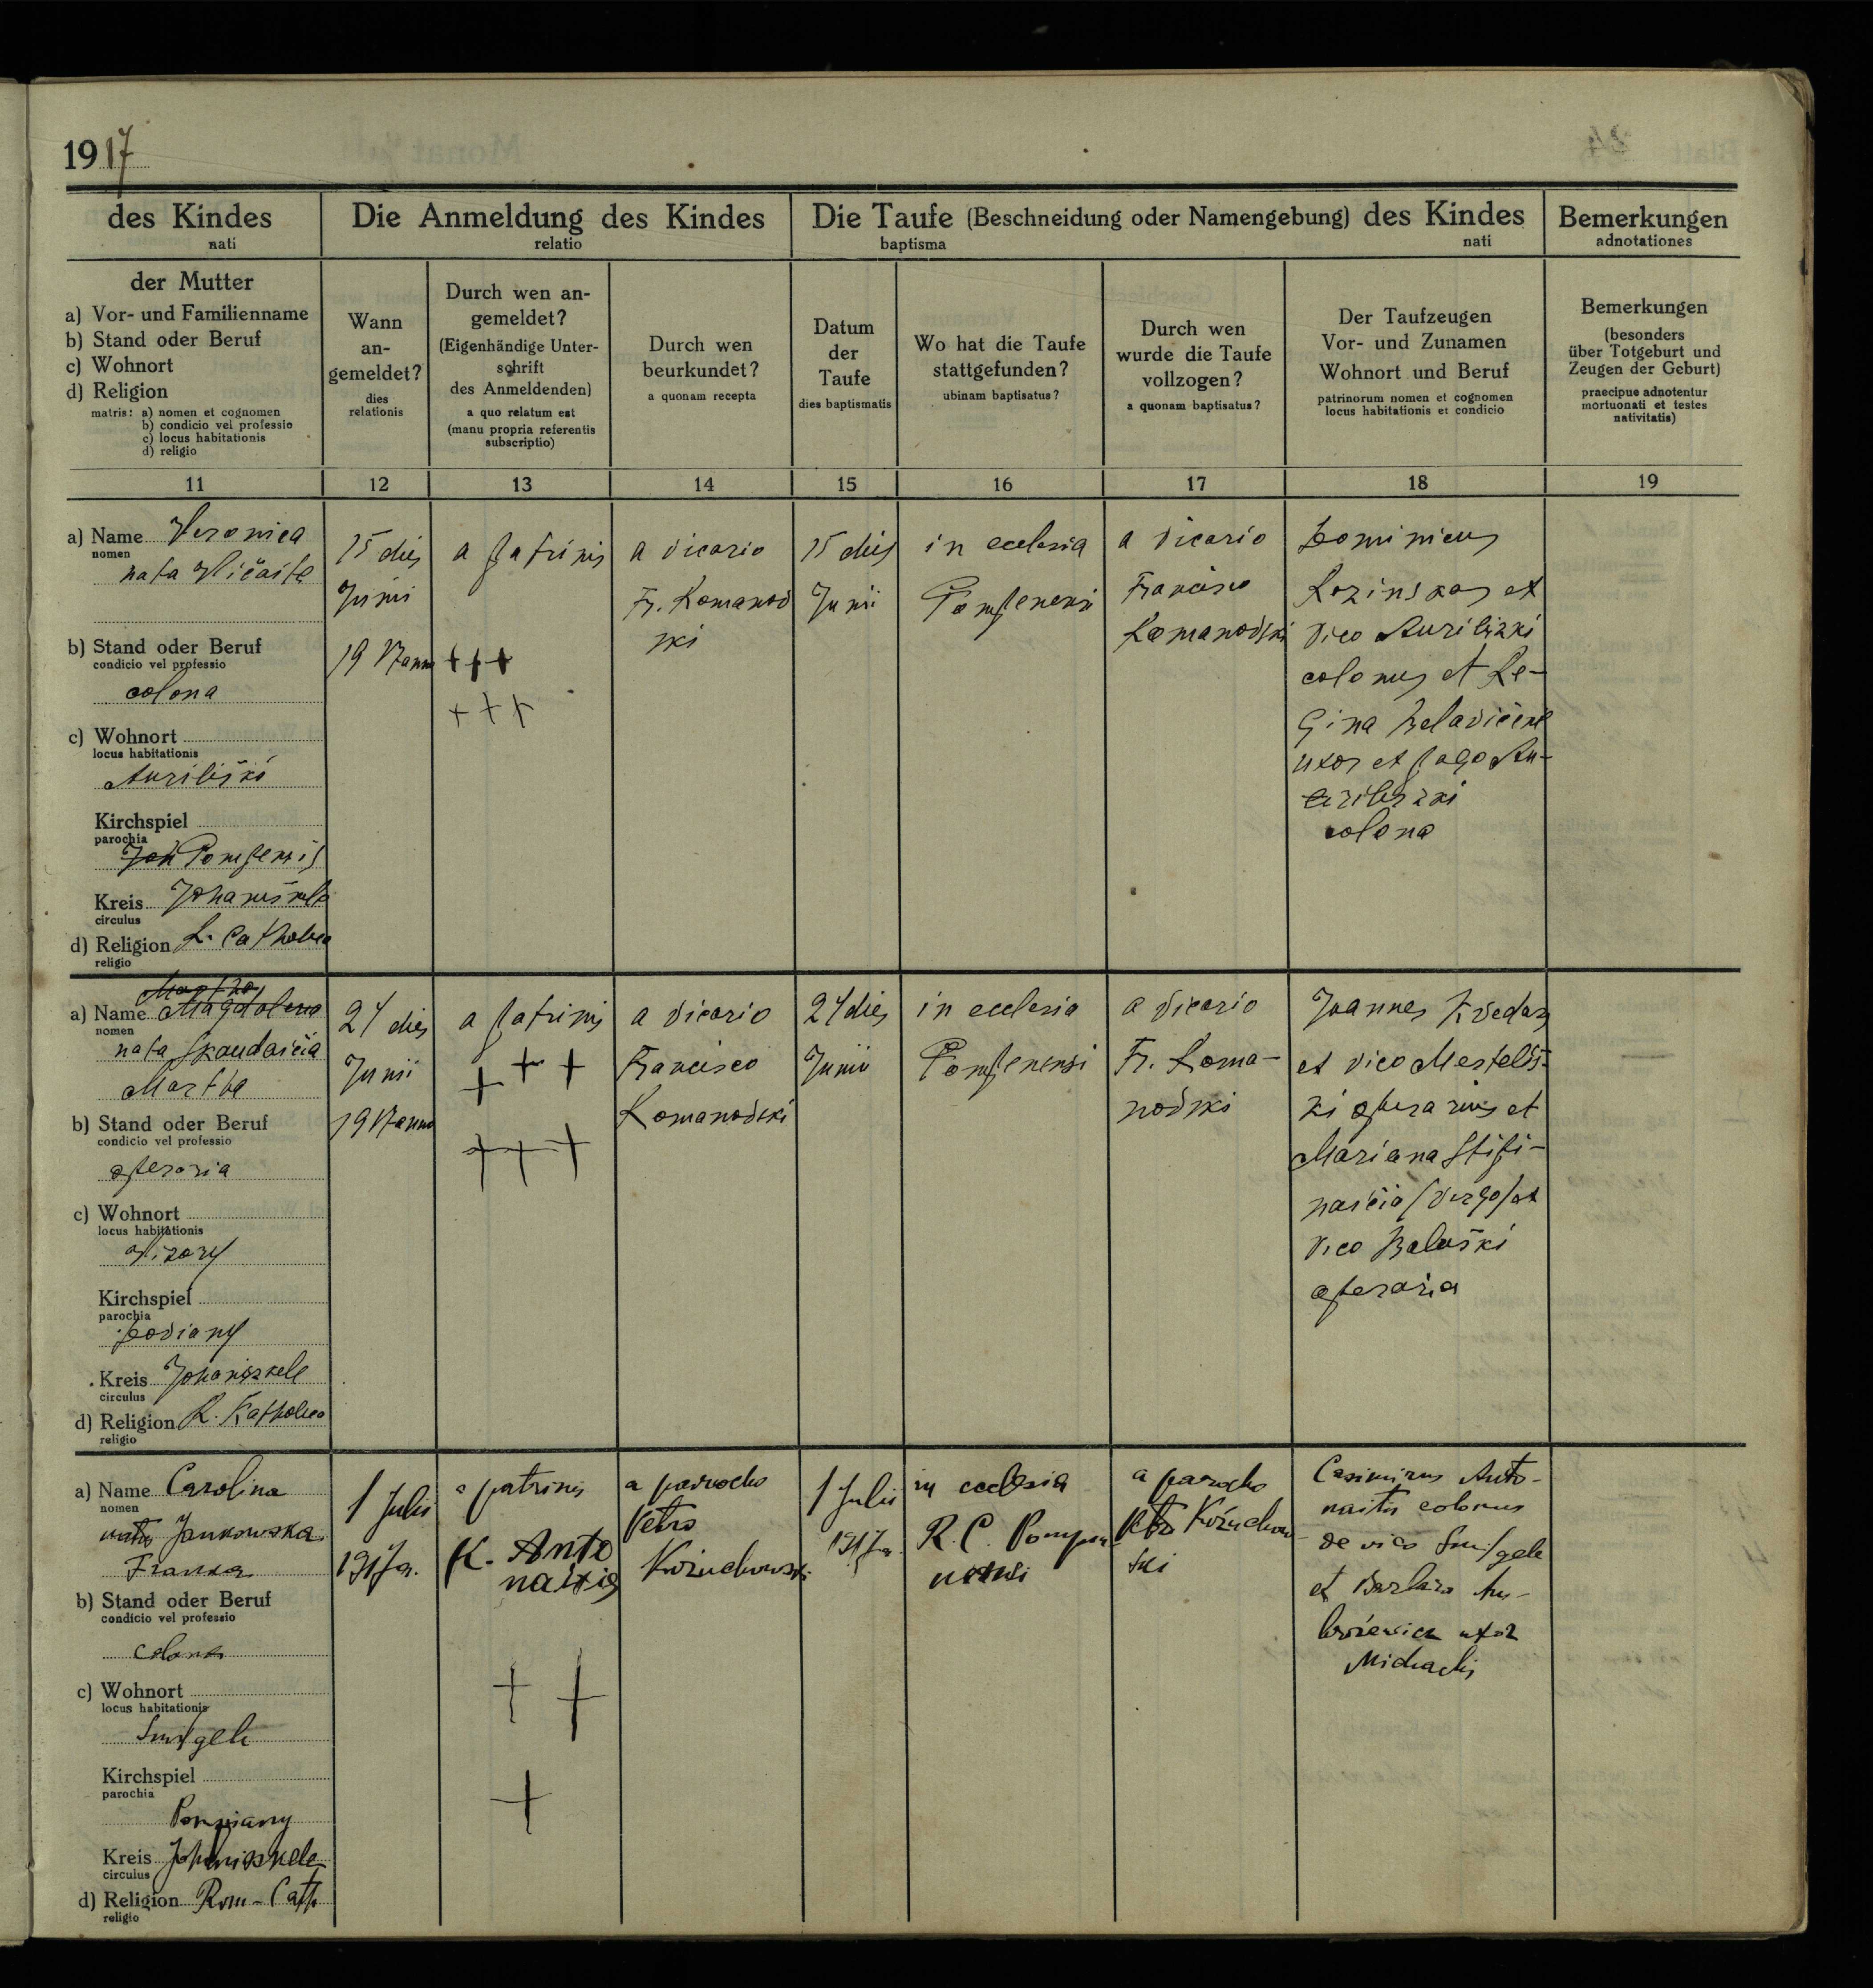 1917
des Kindes
nati
Die Anmeldung des Kindes
relatio
Die Taufe (Beschneidung oder Namengebung) des Kindes
baptisma nati
Bemerkungen
adnotationes
der Mutter
a) Vor- und Familienname
b) Stand oder Beruf
c) Wohnort
d) Religion
matris: a) nomen et cognomen
b) condicio vel professio
c) locus habitationis
d) religio
Wann
an-
gemeldet?
dies
relationis
Durch wen an-
gemeldet?
(Eigenhändige Unter-
schrift
des Anmeldenden)
a quo relatum est
(manu propria referentis
subscriptio)
Durch wen
beurkundet?
a quonam recepta
Datum
der
Taufe
dies baptismatis
Wo hat die Taufe
stattgefunden?
ubinam baptisatus?
Durch wen
wurde die Taufe
vollzogen?
a quonam baptisatus?
Der Taufzeugen
Vor- und Zunamen
Wohnort und Beruf
patrinorum nomen et cognomen
locus habitationis et condicio
Bemerkungen
(besonders
über Totgeburt und
Zeugen der Geburt)
praecipue adnotentur
mortuonati et testes
nativitatis)
11 12 13 14 15 16 17 18 19
a) Name Veronica
nomen
nata
b) Stand oder Beruf
condicio vel professio
colona
c) Wohnort
locus habitationis
Auriliški
Kirchspiel
parochia
Pompensis
Kreis Johaniškeli
circulus
d) Religion R. Catholica
religio
15 dies
Junii
1917 anno
a patrinis
+++
+++
a vicario
Fr. Romanovs
ki
15 dies
Junii
in eclesia
Pompenensi
a vicario
Francisco
Romanovski
Dominicus
Rozinskas et
vico Auriliszki
colonus et Re-
gina Belavičene
uxor et pago Au-
riliszki
colona
a) Name Magdalena
nomen
nata Skaudaičia
Martha
b) Stand oder Beruf
condicio vel professio
operaria
c) Wohnort
locus habitationis
Kirchspiel
parochia
Kreis Johaniszkele
circulus
d) Religion R. Katholica
religio
24 dies
Junii
1917 anno
a patrinis
+ + +
+ + +
a vicario
Francisco
Romanovski
24 dies
Junii
in eclesia
Pompenensi
a vicario
Fr. Roma-
novski
Joannes Kvedars
et vico
ki operarius et
Mariana Stipi-
naičia (virgo) et
vico Baluški
operaria
a) Name Carolina
nomen
nata Jankowska
b) Stand oder Beruf
condicio vel professio
colona
c) Wohnort
locus habitationis
Kirchspiel
parochia
Pompiany
Kreis Johaniszkele
circulus
d) Religion Rom-Cath
religio
1 Julii
1917 a.
a patrinis
K. Anto
naitis
+ +
+
a parocho
Petro
Kożuchowski
1 Julii
1917 a.
in ecclesia
R. C. Pompia
nensi
a parocho
Petro Kożuchow-
ski
Casimirus Anto-
naitis colonus
de vico
et Barbara An-
uxor
Michaelis